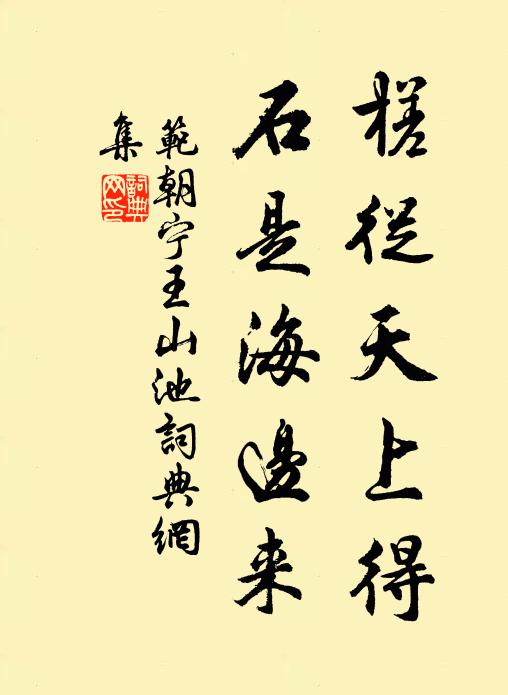 槎從天上得
石是海邊来
範朝宁王山池詞典網
集
詞典
网印